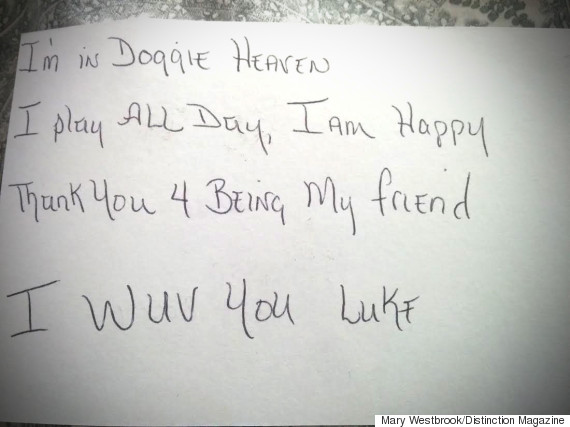 I'm in Doggie Heaven
I play All Day, I Am Happy
Thank You 4 Being My friend
I Wuv You Luke
Mary Westbrook/Distinction Magazine